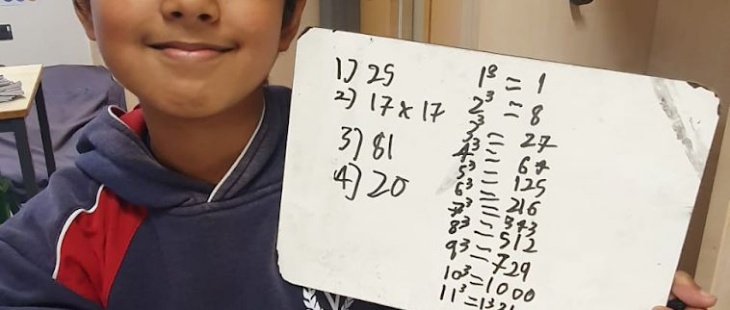 1) 25
2) 17 x 17
3) 81
4) 20
1³ = 1
2³ = 8
3³ = 27
4³ = 64
5³ = 125
6³ = 216
7³ = 343
8³ = 512
9³ = 729
10³ = 1000
11³ = 1331